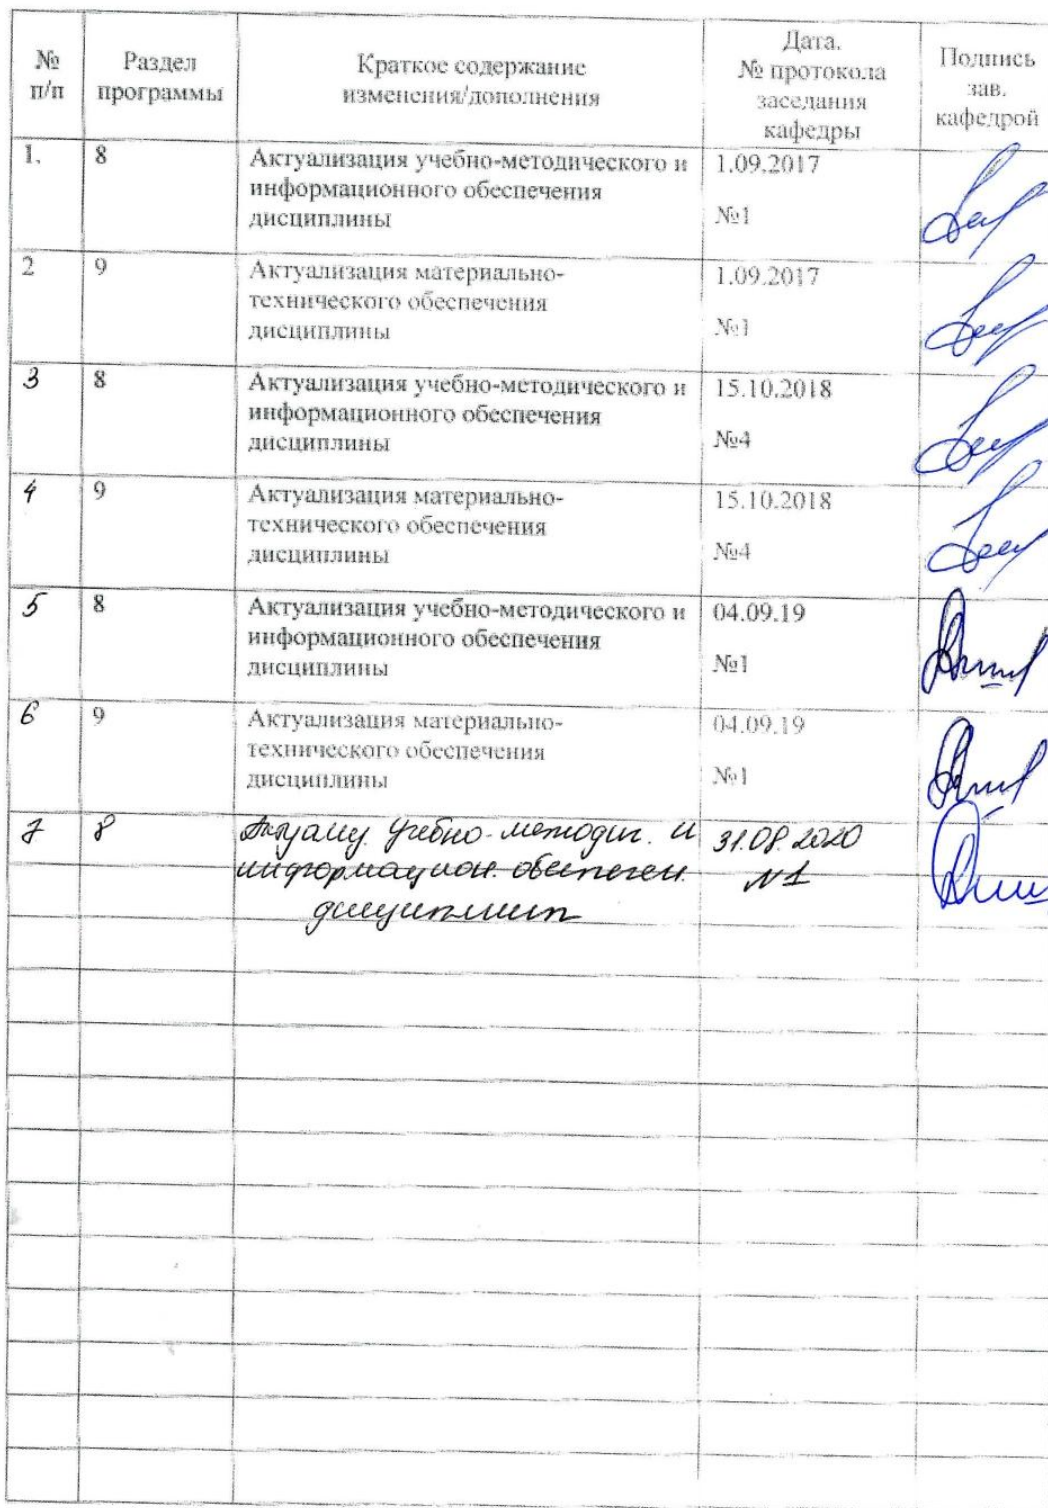 № п/п
Раздел программы
Краткое содержание
изменения/дополнения
Дата.
№ протокола
заседания
кафедры
Подпись
зав.
кафедрой
1. 8 Актуализация учебно-методического и 1.09.2017
информационного обеспечения
дисциплины №1
2 9 Актуализация материально- 1.09.2017
технического обеспечения
дисциплины №1
3 8 Актуализация учебно-методического и 15.10.2018
информационного обеспечения
дисциплины №4
4 9 Актуализация материально- 15.10.2018
технического обеспечения
дисциплины №4
5 8 Актуализация учебно-методического и 04.09.19
информационного обеспечения
дисциплины №1
6 9 Актуализация материально- 04.09.19
технического обеспечения
дисциплины №1
7 8 Актуализ. учебно-методич. и 31.08.2020
информацион. обеспечен. №1
дисциплин